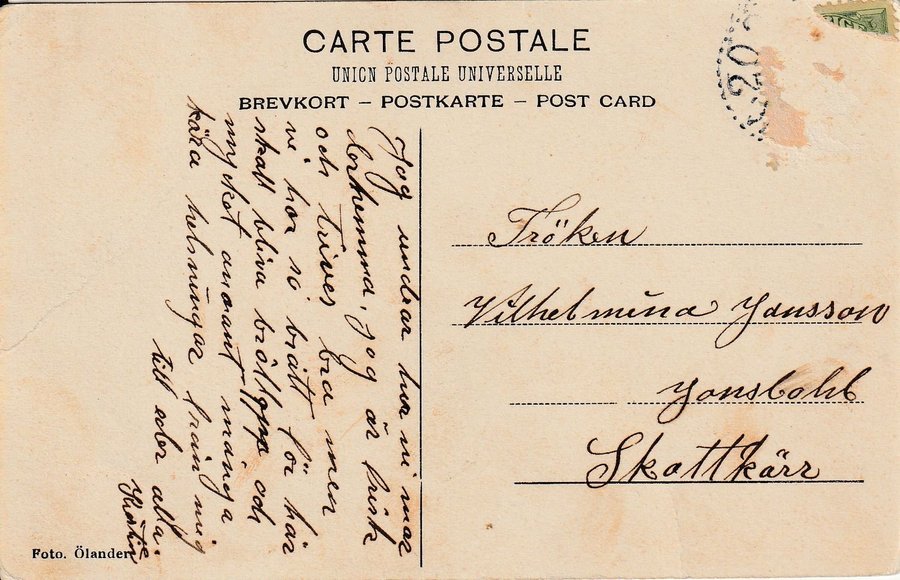 CARTE POSTALE
UNION POSTALE UNIVERSELLE
BREVKORT – POSTKARTE – POST CARD
Jag undrar hur ni mar
derhemma, jag är frisk
och trives bra men
vi har så brått för här
skall bliva bröllop och
mycket annant många
kära helsningar från mig
till eder alla.
Fröken
Vilhelmina Jansson
Jonsbohl
Skattkärr
Foto. Ölander
20